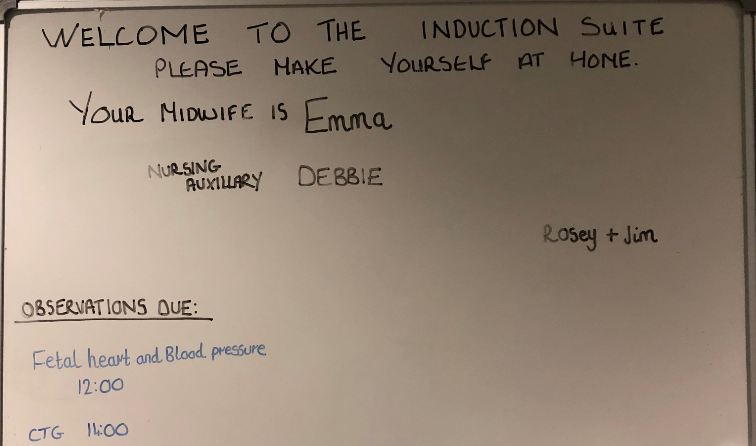 WELCOME TO THE INDUCTION SUITE
PLEASE MAKE YOURSELF AT HOME.
YOUR MIDWIFE IS Emma
NURSING
AUXILLARY DEBBIE
Rosey + Jim
OBSERVATIONS DUE:
Fetal heart and Blood pressure
12:00
CTG 14:00